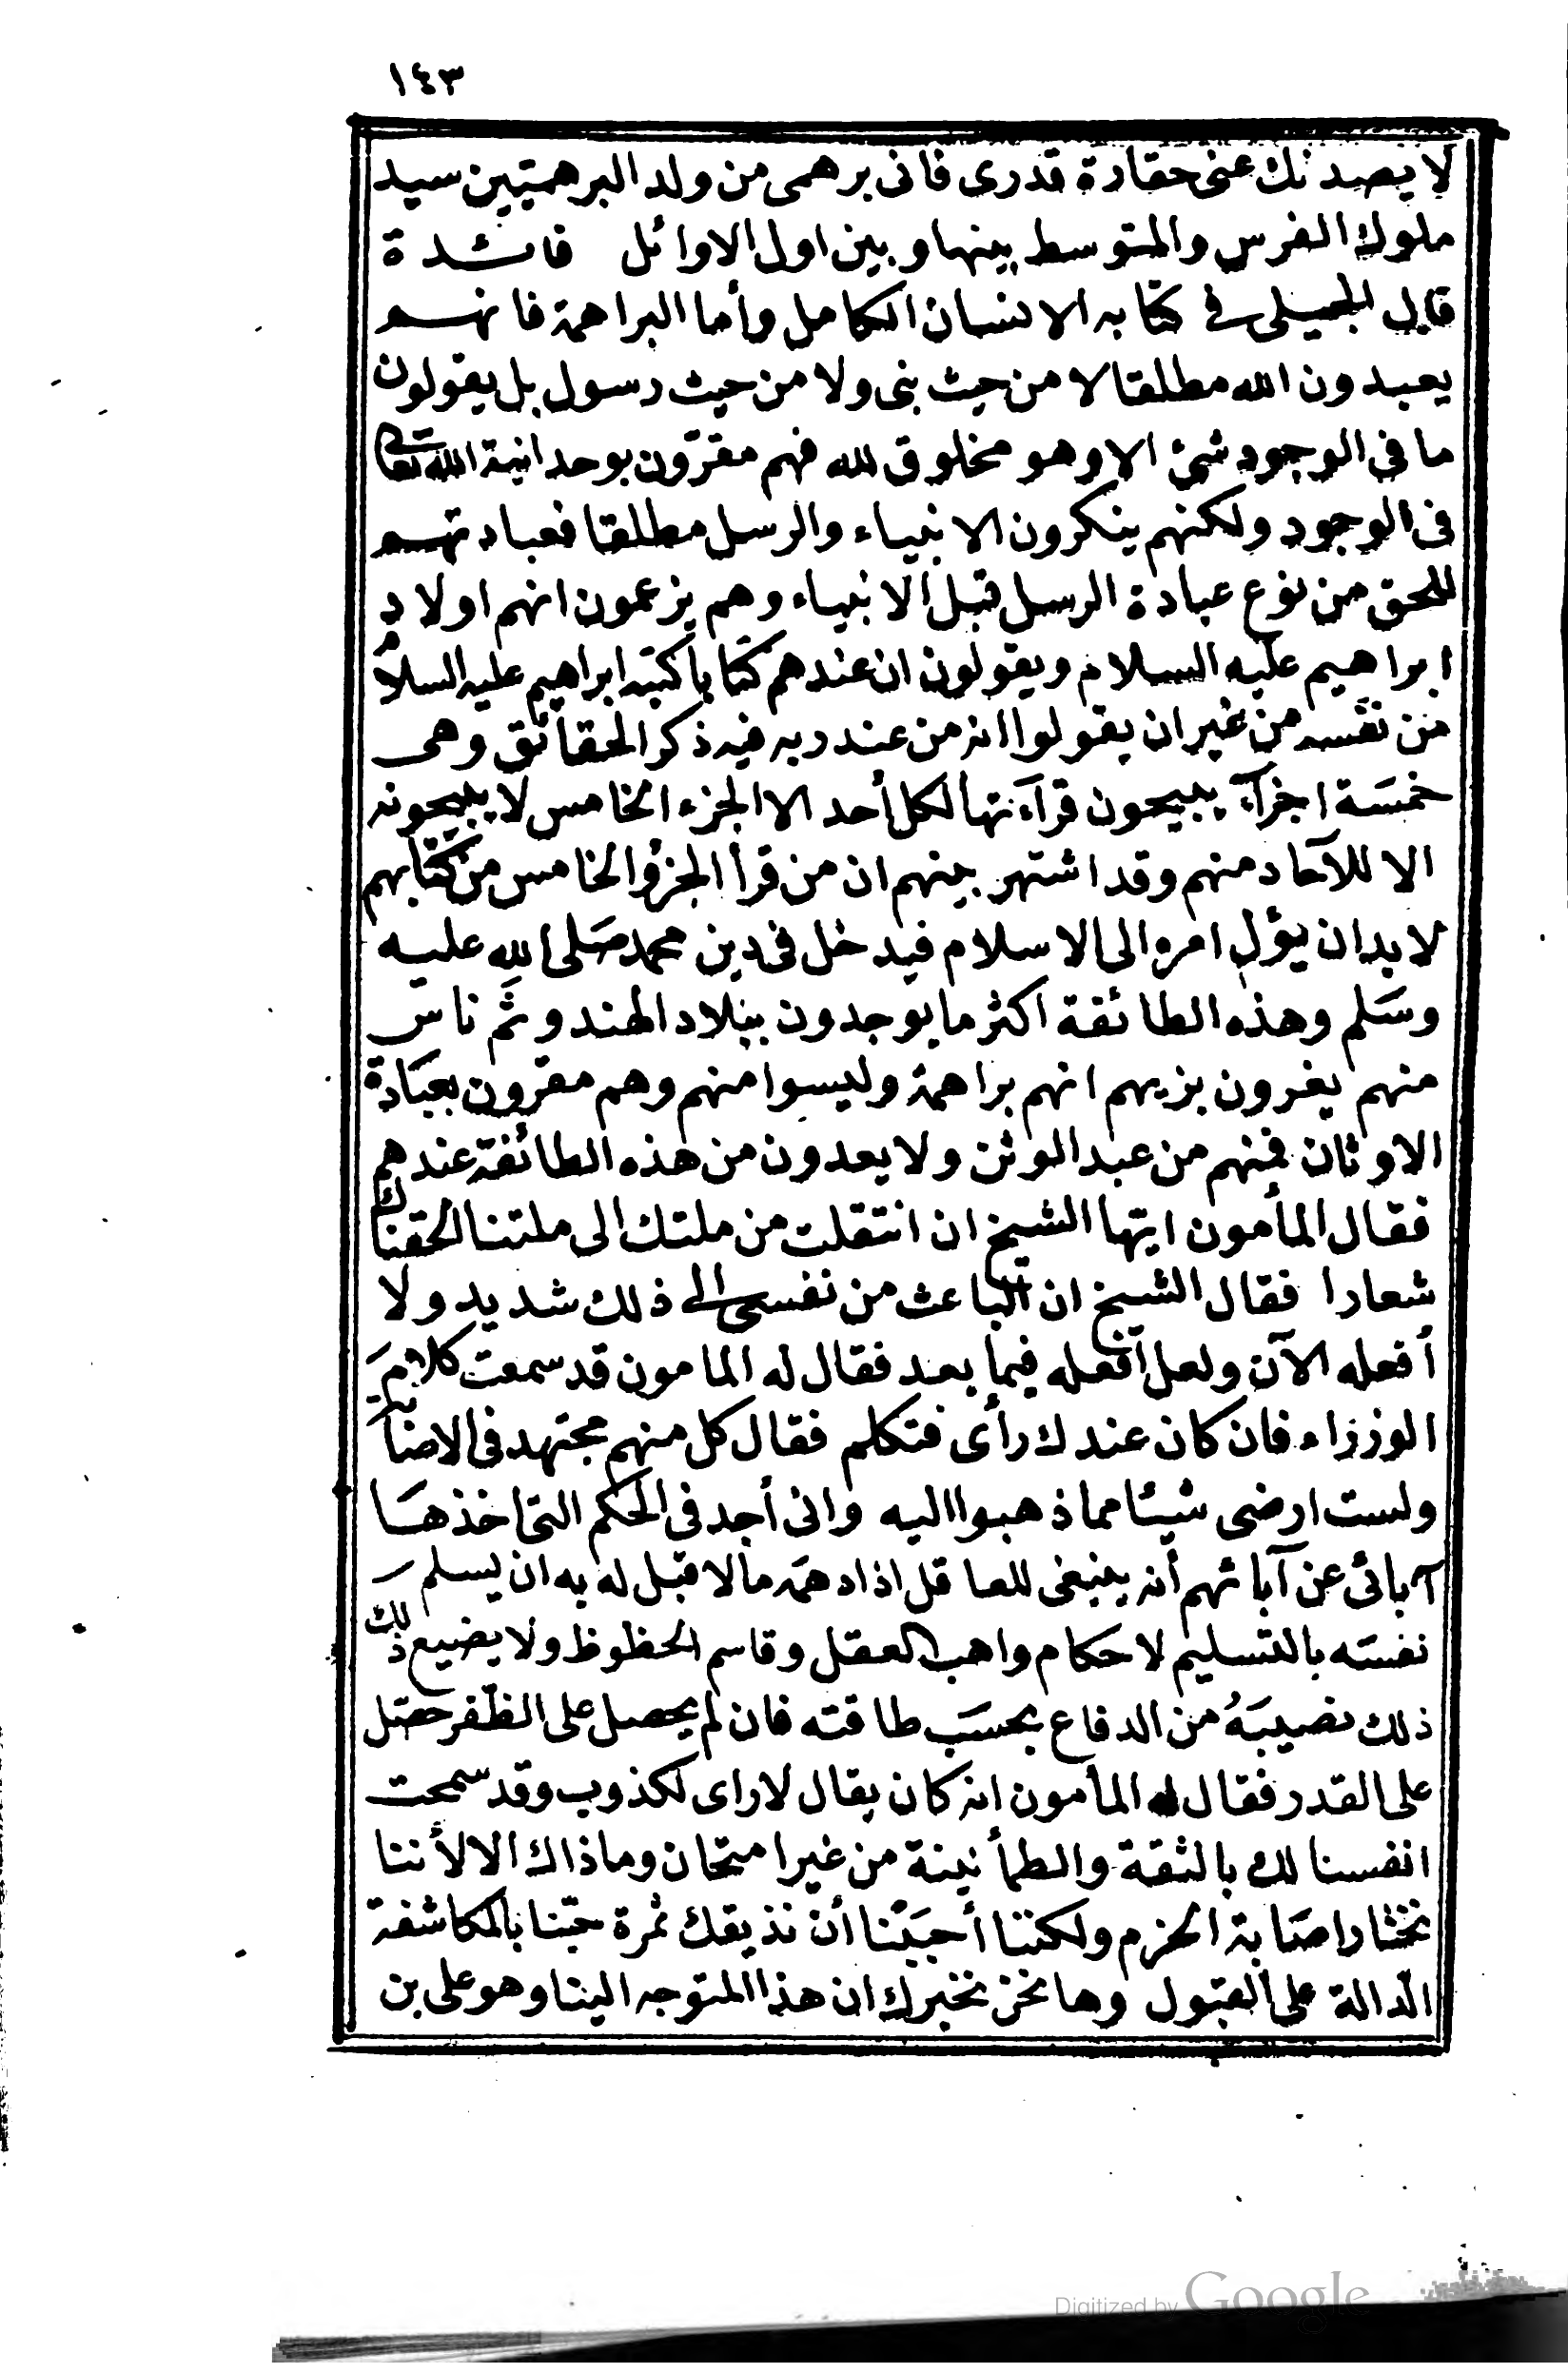 ١٤٣
لا يصدنك عنى حقارة قدرى فانى برهمى من ولد البرهميتين سيد
ملوك الفرس والمتوسط بينها وبين اول الاوائل فائدة
قال الجيلى فى كتابه الانسان الكامل وأما البراهمة فانهم
يعبدون الله مطلقا لا من حيث نبى ولا من حيث رسول بل يقولون
ما فى الوجود شئ الا وهو مخلوق لله فهم مقرّون بوحدانية الله تعالى
فى الوجود ولكنهم ينكرون الانبياء والرسل مطلقا فعبادتهم
للحق من نوع عبادة الرسل قبل الانبياء وهم يزعمون انهم اولاد
ابراهيم عليه السلام ويقولون ان عندهم كتابا كتبه ابراهيم عليه السلام
من نفسه من غير ان يقولوا انه من عند ربه فيه ذكر الحقائق وهى
خمسة اجزآء يبيحون قرآءتها لكل أحد الا الجزء الخامس لا يبيحونه
الا للآحاد منهم وقد اشتهر بينهم ان من قرأ الجزؤ الخامس من كتابهم
لابد ان يؤل امره الى الاسلام فيدخل فى دين محمد صلى الله عليه
وسلم وهذه الطائفة اكثر ما يوجدون ببلاد الهند وثم ناس
منهم يغرون بزيهم انهم براهمة وليسوا منهم وهم مقرون بعبادة
الاوثان فمنهم من عبد الوثن ولا يعدون من هذه الطائفة عندهم
فقال المأمون ايتها الشيخ ان انتقلت من ملتك الى ملتنا الحقناك
شعارا فقال الشيخ ان الباعث من نفسى الى ذلك شديد ولا
أفعله الآن ولعل أفعله فيما بعد فقال له المامون قد سمعت كلام
الوزراء فان كان عندك رأى فتكلم فقال كل منهم مجتهد فى الاصابة
ولست ارضى شيئا مما ذهبوا اليه وانى أجد فى الحكم التى اخذها
آبائى عن آبائهم أنه ينبغى للعاقل اذا دهمه مالا قبل له به ان يسلم
نفسه بالتسليم لاحكام واهب العقل وقاسم الحظوظ ولا يضيع ذلك
ذلك نصيبَهُ من الدفاع بحسب طاقته فان لم يحصل على الظفر حصل
على القدر فقال له المأمون انه كان يقال لا راى لكذوب وقد سمحت
انفسنا لك بالثقة والطمأنينة من غير امتحان وما ذاك الا لأننا
نختار اصابة الحزم ولكننا أحببنا أن نذيقك ثمرة حبّنا بالمكاشفة
الدالة على القبول وها نحن نخبرك ان هذا المتوجه الينا وهو على بن
Digitized by Google